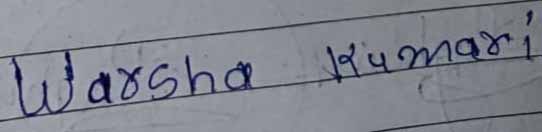 Warsha Kumari